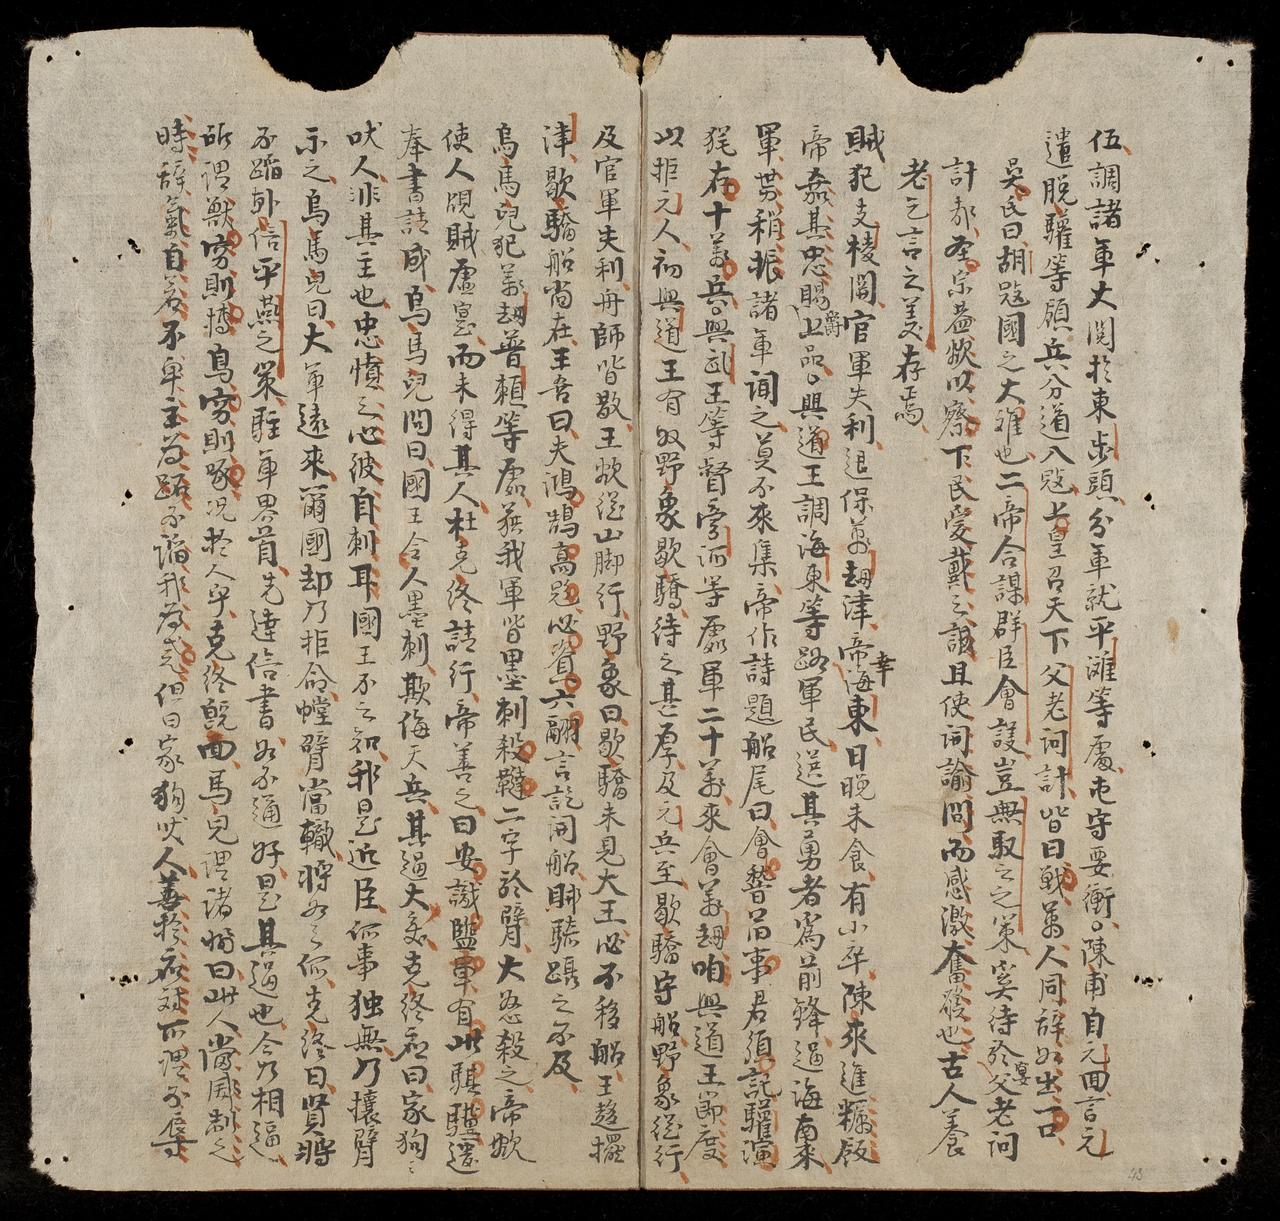 伍調諸軍大閱於東步頭分軍就平灘等處屯守要衝陳甫自元囬言元
遣脫驩等領兵分道入寇上皇召天下父老问計皆曰戰萬人同辞如出一口
吳氏曰胡寇國之大难也二帝合謀群臣會議豈無取之之策奚待於宴父老问
計耶圣宗盖欲以察下民愛戴之誠且使词諭问而感激奋發也古人養
老乞言之义存焉
賊犯支棱関官軍失利退保萬刼津帝幸海東日晚未食有小卒陳來進糲飯
帝嘉其忠賜爵上品興道王調海東等路軍民選其勇者為前鋒過海南來
軍势稍振諸軍闻之莫不來集帝作詩題船尾曰會稽旧事君須記驩演
犹存十萬兵興武王等督旁河等處軍二十萬來會萬刼咱興道王節度
以拒元人初興道王有奴野象歇驕待之甚厚及元兵至歇驕守船野象從行
及官軍失利舟師皆散王欲從山脚行野象曰歇驕未見大王必不移船王趍擺
津歇驕船尚在王喜曰夫鴻鵠高飛必資六翮言訖闹船賊騎蹑之不及
烏馬兒犯萬刼普賴等處获我軍皆墨刺殺韃二字於臂大怒殺之帝欲
使人覘賊虛寔而未得其人杜克终請行帝善之曰安識盬車有此騏驥遣
奉書請成烏馬兒问曰國王令人墨刺欺侮天兵其過大矣克终应曰家狗之
吠人非其主也忠憤之心彼自刺耳國王不之知我是近臣何事独無乃攘臂
示之烏馬兒曰大軍遠來爾國却乃拒命螳臂當轍將如之何克终曰贤将
不蹈卦信平燕之策駐軍界首先達信書如不通好是其過也今乃相逼
所謂獸穷則搏鳥穷則啄况於人乎克终既囬馬兒谓諸將曰此人當風制之
時辞氣自若不卑主為跖不諂我為尧但曰家狗吠人善於应对可谓不辱